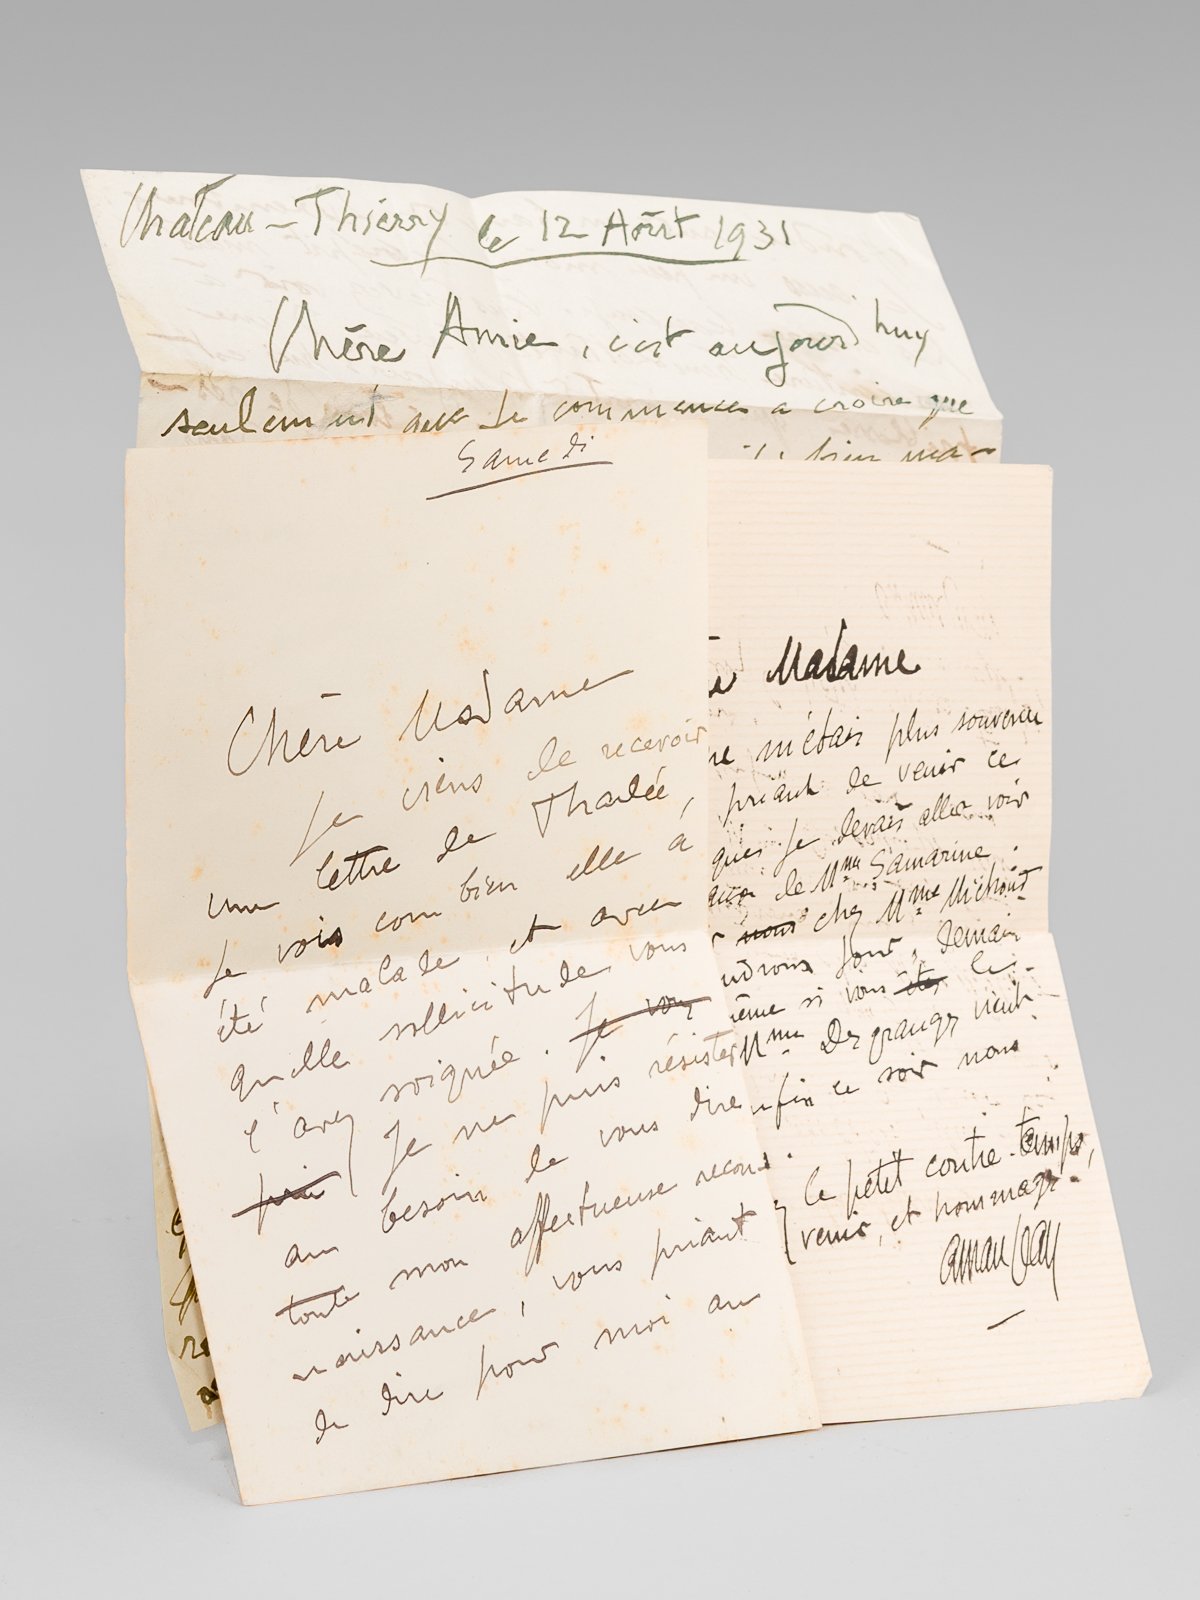 Château-Thierry le 12 Août 1931
Chère Amie, c'est aujourd'huy
seulement que je commence a croire que
bien ma-
Samedi
Chère Madame
Je viens de recevoir
une lettre de Thadée,
Je vois combien elle à
été malade, et avec
quelle sollicitude vous
l'avez soignée. Je vous
prie Je ne puis résister
au besoin de vous dire
toute mon affectueuse recon-
naissance, vous priant
de dire pour moi au
Madame
ne m'étais plus souvenu
priant de venir ce
que je devais aller voir
de Mme Samarine.
nous chez Mme Michoud
jour, demain
si vous êtes le
Mme Desgranges vient
enfin ce soir nous
le petit contre-temps,
venir, et hommages.
aman Jean